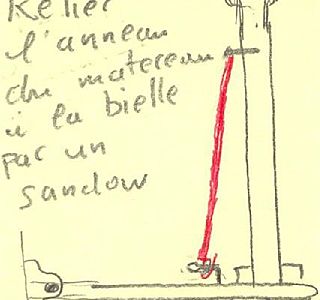 Relier
l'anneau
du matereau
à la bielle
par un
sandow